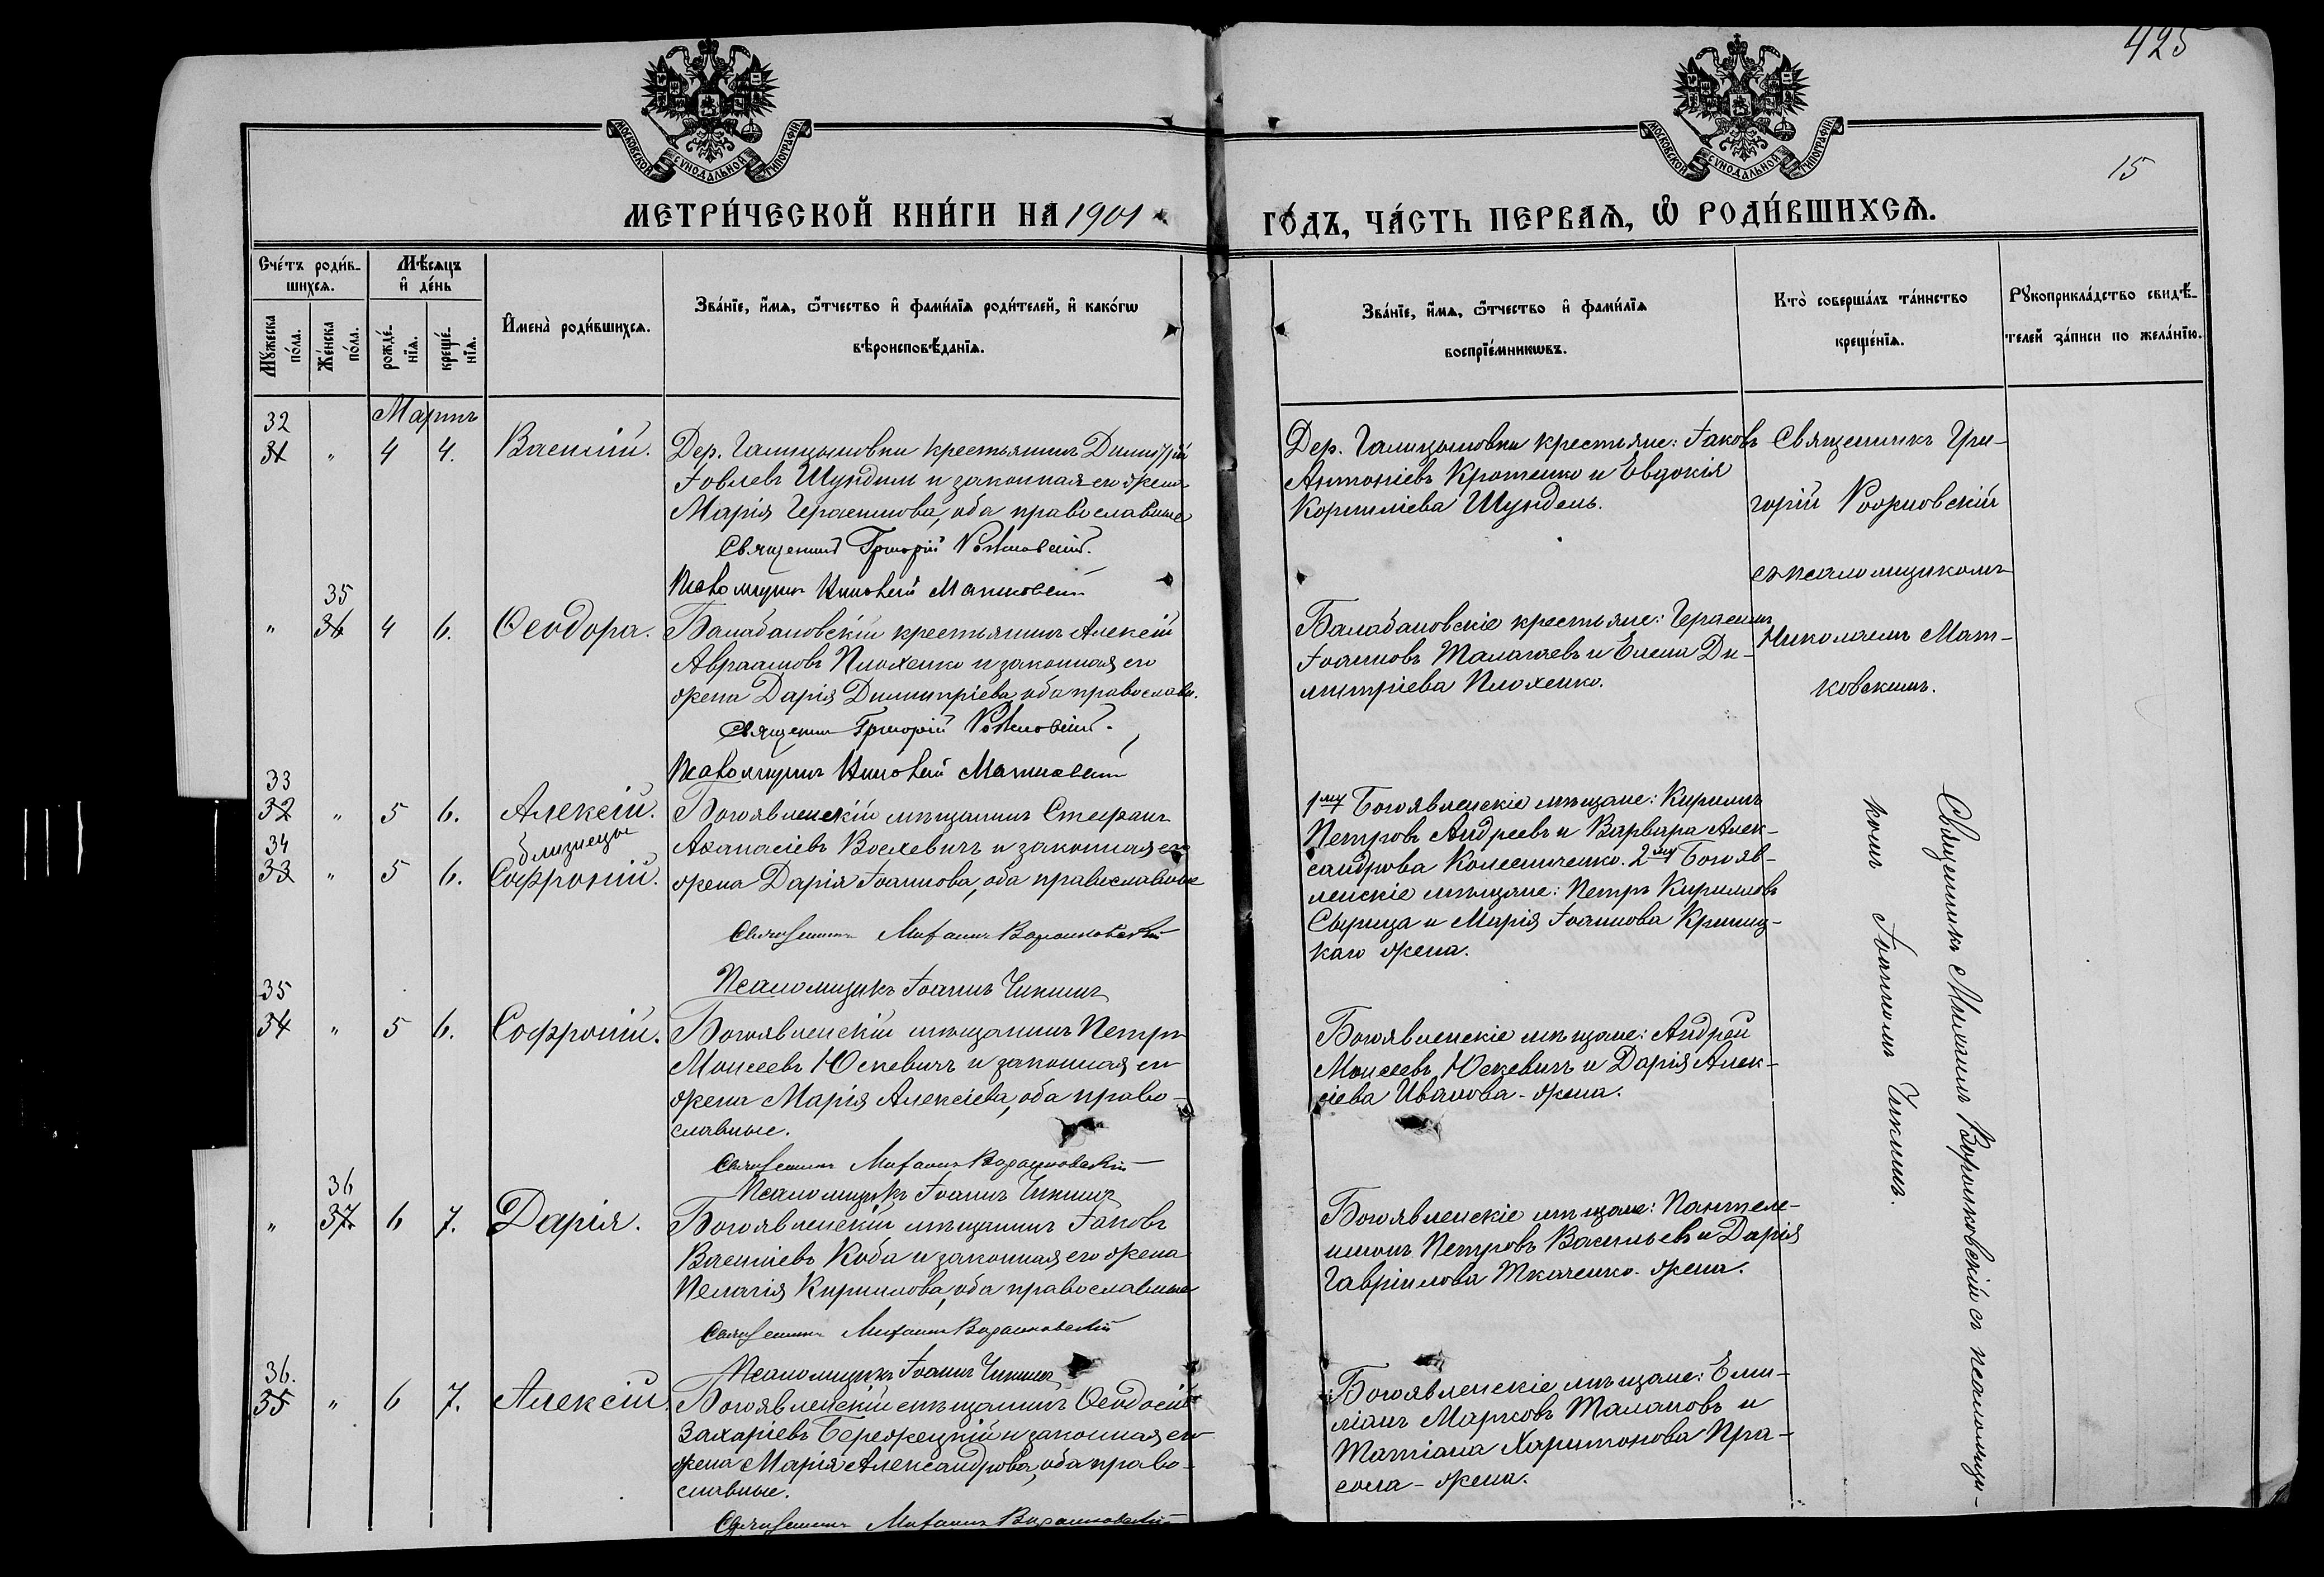 425
15
МОСКОВСКОЙ СѴНОДАЛЬНОЙ ТИПОГРАФІИ
МОСКОВСКОЙ СѴНОДАЛЬНОЙ ТИПОГРАФІИ
МЕТРИ́ЧЕСКОЙ КНИ́ГИ НА 1901
ГО́ДЪ, ЧА́СТЬ ПЕРВАѦ, Ѡ҆ РОДИ́ВШИХСѦ.
Сче́тъ роди́в-
шихсѧ.
Мѣ́сѧцъ
и҆ де́нь
Мꙋ́жеска
по́ла.
Же́нска
по́ла.
рожде́-
нїѧ.
креще́-
нїѧ.
И҆мена̀ роди́вшихсѧ.
Зва́нїе, и҆́мѧ, ѻ҆́тчество и҆ фами́лїѧ роди́телей, и҆ како́гѡ
вѣроисповѣ́данїѧ.
Зва́нїе, и҆́мѧ, ѻ҆́тчество и҆ фами́лїѧ
воспрїе́мникѡвъ.
Кто̀ соверша́лъ та́инство
креще́нїѧ.
Рꙋкоприкла́дство свидѣ́-
телей за́писи по жела́нїю.
Мартъ
32
31 " 4 4. Василій.
Дер. Галицыновки крестьянинъ Димитрій
Іовлевъ Шундель и законная его жена
Марія Герасимова, оба православные
Священникъ Григорій
Псаломщикъ Николай Матковскій
Дер. Галицыновки крестьяне: Іаковъ
Антоніевъ Кротенко и Евдокія
Корниліева Шундель.
Священникъ Гри-
горій
съ псаломщикомъ
Николаемъ Мат-
ковскимъ.
35
" 36 4 6. Ѳеодора.
Балабановскій крестьянинъ Алексій
Авраамовъ Плохенко и законная его
жена Дарія Димитріева, оба православн.
Священникъ Григорій
Псаломщикъ Николай Матковскій
Балабановскіе крестьяне: Герасимъ
Іоанновъ Талагаевъ и Елена Ди-
митріева Плохенко.
33
32 " 5 6. Алексій.
близнецы
34
33 " 5 6. Софроній.
Богоявленскій мѣщанинъ Стефанъ
Аѳанасіевъ и законная его
жена Дарія Іоаннова, оба православные
Священникъ Михаилъ Варшковскій
Псаломщикъ Іоаннъ Чикинъ
1му Богоявленскіе мѣщане: Кириллъ
Петровъ Андреевъ и Варвара Алек-
сандрова Колесниченко. 2му Богояв-
ленскіе мѣщане: Петръ Кирилловъ
Сырица и Марія Іоаннова Криниц-
каго жена.
Священникъ Михаилъ Варшковскій съ псаломщи-
комъ Іоанномъ Чикинымъ.
35
34 " 5 6. Софроній.
Богоявленскій мѣщанинъ Петръ
Моисеевъ Юскевичъ и законная его
жена Марія Алексіева, оба право-
славные.
Священникъ Михаилъ Варшковскій
Псаломщикъ Іоаннъ Чикинъ
Богоявленскіе мѣщане: Андрей
Моисеевъ Юскевичъ и Дарія Алек-
сіева Иванова - жена.
36
" 37 6 7. Дарія.
Богоявленскій мѣщанинъ Іаковъ
Василіевъ Коба и законная его жена
Пелагія Кириллова, оба православные
Священникъ Михаилъ Варшковскій
Псаломщикъ Іоаннъ Чикинъ
Богоявленскіе мѣщане: Пантеле-
имонъ Петровъ Васильевъ и Дарія
Гавріилова Ткаченко - жена.
36.
35 " 6 7. Алексій.
Богоявленскій мѣщанинъ Ѳеодосій
Захаріевъ Бережецкій и законная его
жена Марія Александрова, оба право-
славные.
Священникъ Михаилъ Варшковскій
Богоявленскіе мѣщане: Еми-
ліанъ Марковъ Талановъ и
Татіана Харитонова Пра-
сола - жена.